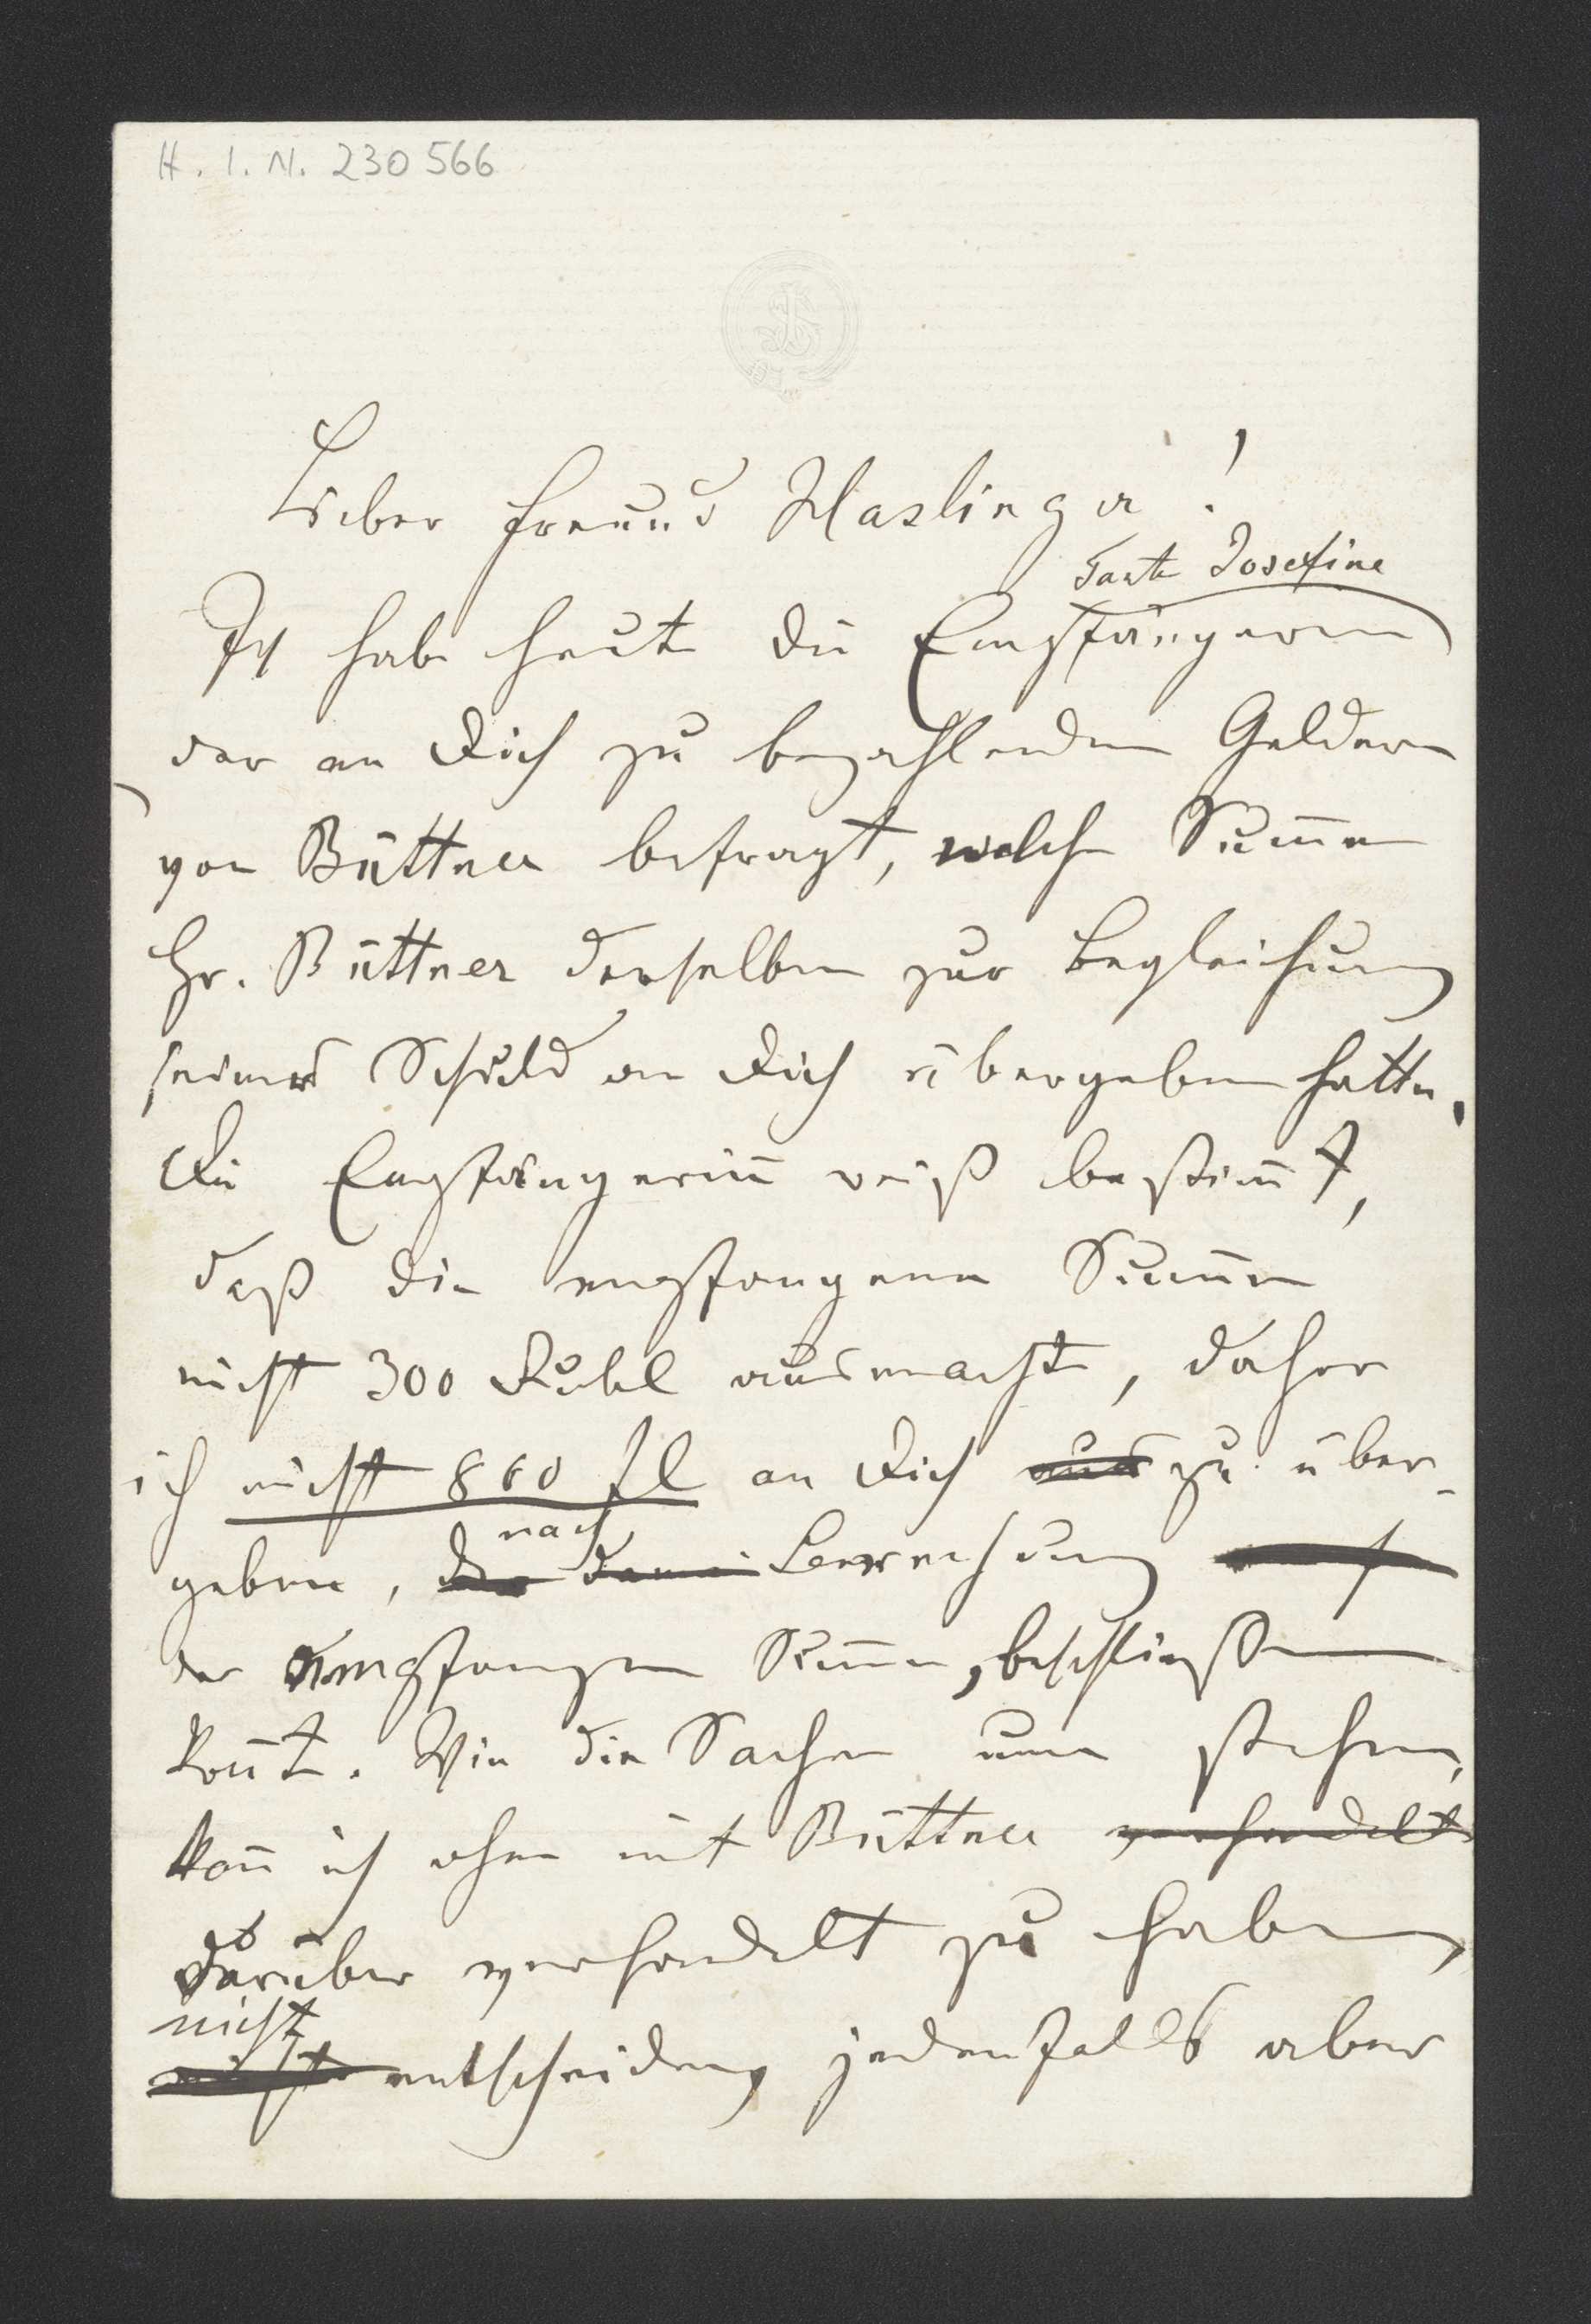 H. I. N. 230 566
Lieber Freund Haslinger!
Tante Josefine
Ich habe heute die Empfängerin
der an Dich zu bezahlenden Gelder
von Büttner befragt, welche Sum̄e
Hr. Büttner derselben zur Begleichung
seiner Schuld an Dich übergeben hatte.
Die Empfängerin̄ weiß bestim̄t,
daß die empfangene Sum̄e
nicht 300 Rubel ausmachte, daher
ich nicht 860 fl an Dich aus zu über-
nach
geben, Berechnung
der empfangen Sum̄e, beschließen
kon̄te. Wie die Sachen nun stehen,
kan̄ ich ohne mit Büttner verhandelt
darüber verhandelt zu haben,
nicht
nicht entscheiden, jedenfalls aber